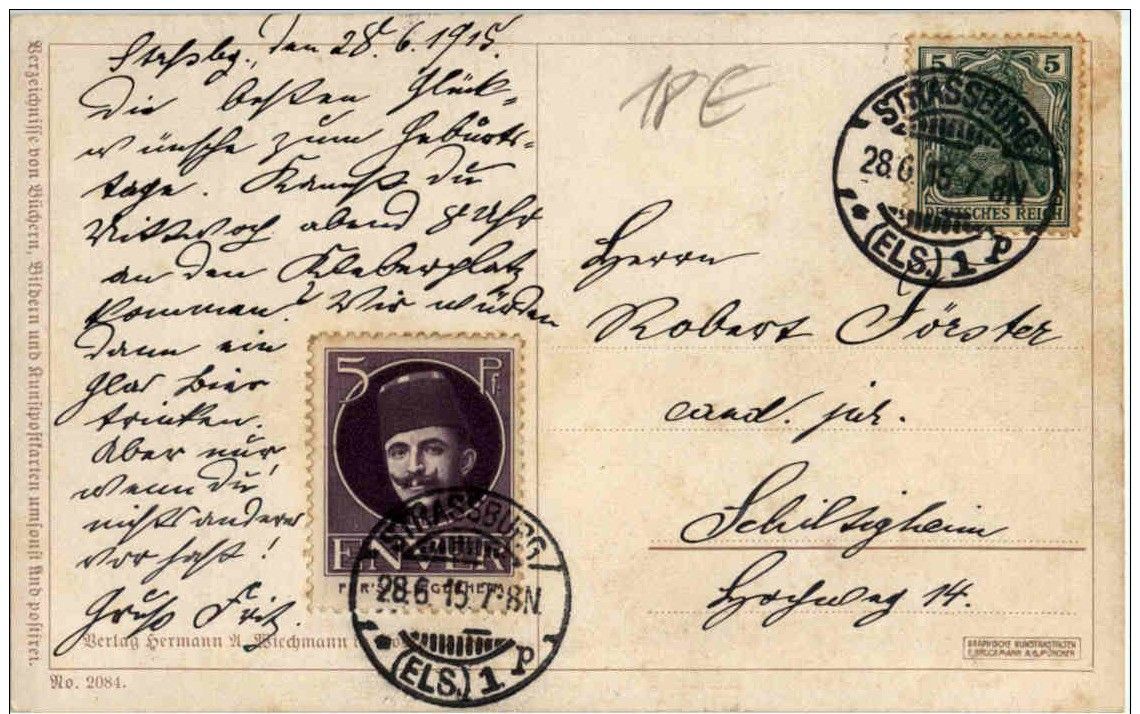 Straßbg., den 28.6.1915.
Die besten Glück-
wünsche zum Geburts-
tage. Kannst du
Mittwoch abend 8 Uhr
an den Kleberplatz
kommen? Wir würden
dann ein
Glas Bier
trinken.
Aber nur
wenn du
nichts anderes
vor hast!
Gruß Fritz.
Verzeichnisse von Büchern, Bildern und Kunstpostkarten umsonst und postfrei.
Verlag Hermann A. Wiechmann
No. 2084.
5 Pf.
ENVER
STRASSBURG
28.6.15.7-8N
(ELS.) 1 p
18 €
5 5
DEUTSCHES REICH
STRASSBURG
28.6.15.7-8N
(ELS.) 1 p
Herrn
Robert Förster
cand. jur.
Schiltigheim
Hochweg 14.
GRAPHISCHE KUNSTANSTALTEN
F. BRUCKMANN A.G. MÜNCHEN